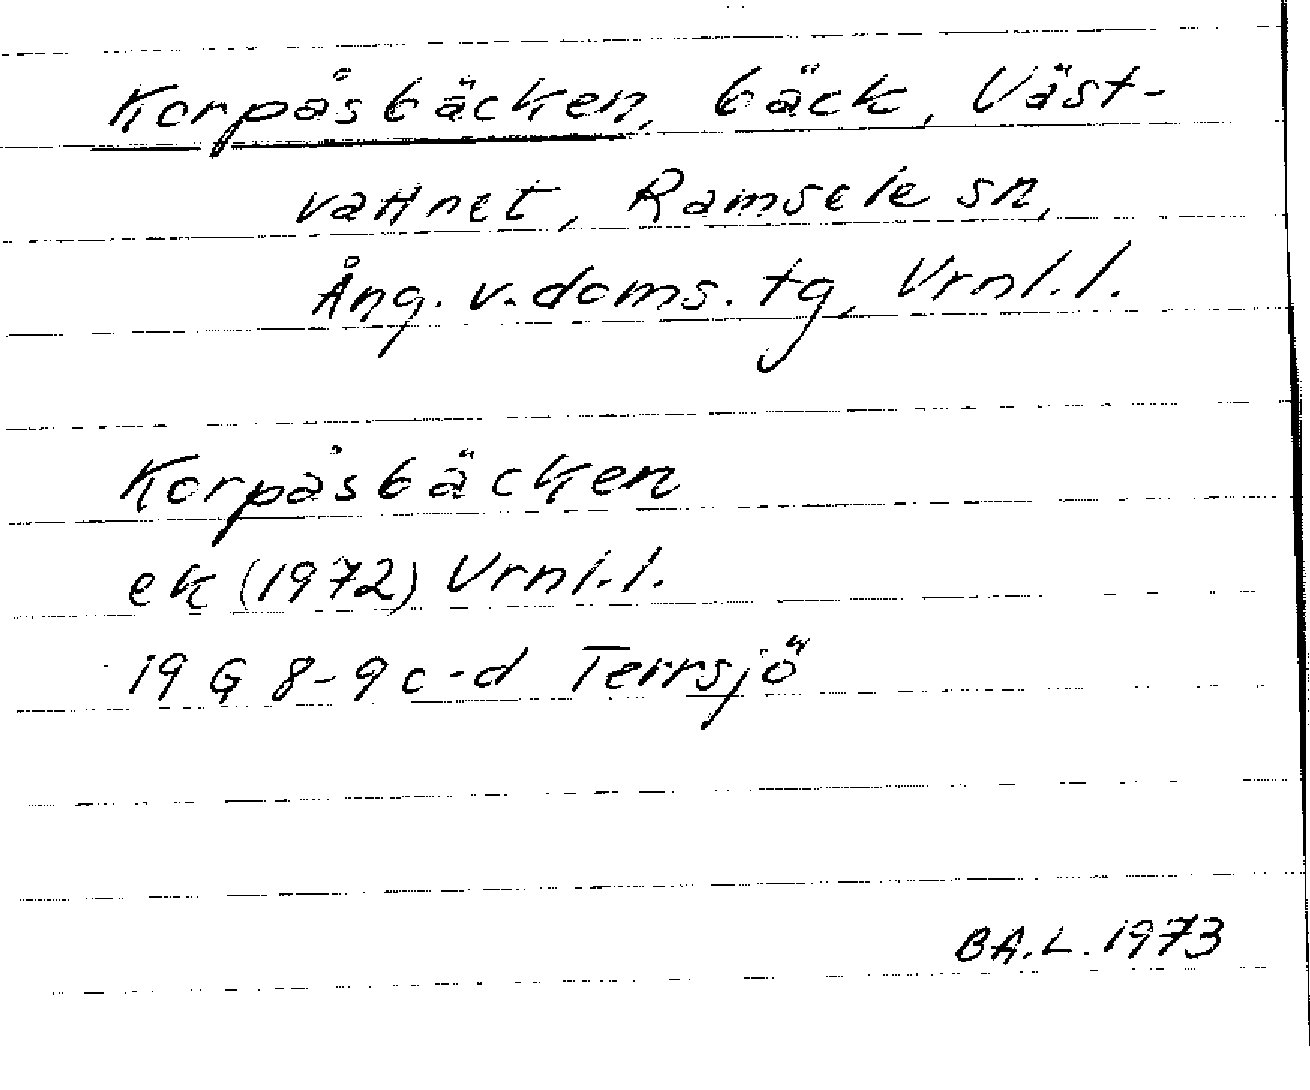 Korpåsbäcken, bäck, Väst-
vattnet, Ramsele sn,
Ång. v. doms. tg, Vrnl. l.
Korpåsbäcken
ek (1972) Vrnl. l.
19 G 8-9 c-d Terrsjö
BA.L. 1973